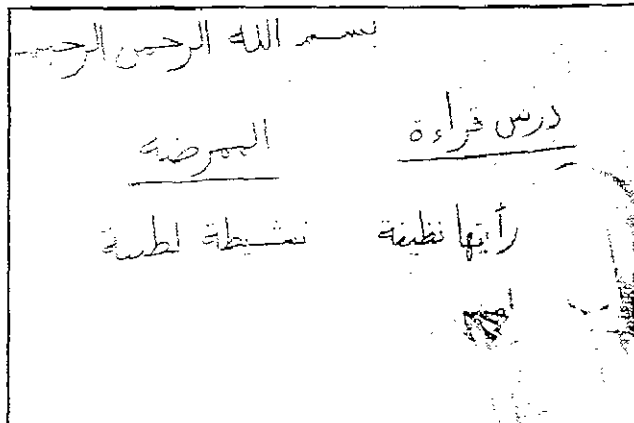 بسم الله الرحمن الرحيم
درس قراءة الممرضة
رأيتها نظيفة نشيطة لطيفة